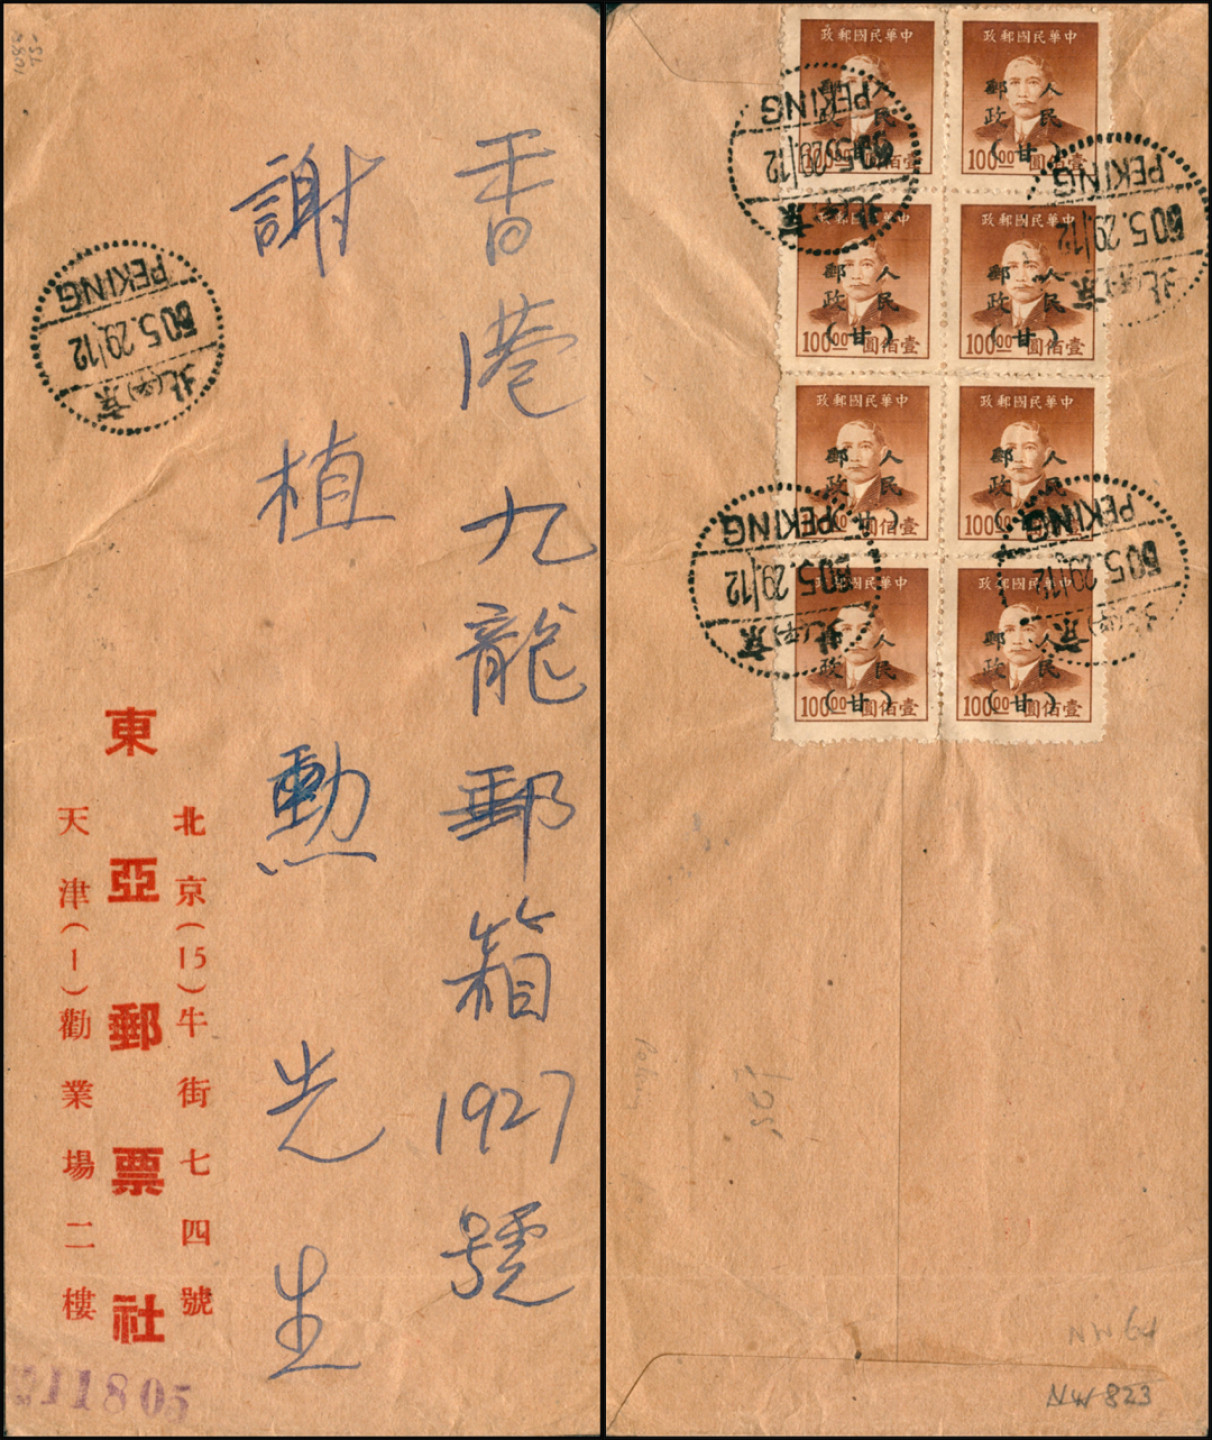 香港九龍郵箱1927號
謝植勳先生
北京(15)牛街七四號
東亞郵票社
天津(1)勸業場二樓
PEKING
50.5.29/12
北 京
11805
中華民國郵政
人民郵政
(甘)
100 00 壹佰圓
中華民國郵政
人民郵政
(甘)
100 00 壹佰圓
中華民國郵政
人民郵政
(甘)
100 00 壹佰圓
中華民國郵政
人民郵政
(甘)
100 00 壹佰圓
中華民國郵政
人民郵政
(甘)
100 00 壹佰圓
中華民國郵政
人民郵政
(甘)
100 00 壹佰圓
中華民國郵政
人民郵政
(甘)
100 00 壹佰圓
中華民國郵政
人民郵政
(甘)
100 00 壹佰圓
PEKING
50.5.29/12
北 京
PEKING
50.5.29/12
北 京
PEKING
50.5.29/12
北 京
PEKING
50.5.29/12
北 京
NW 823